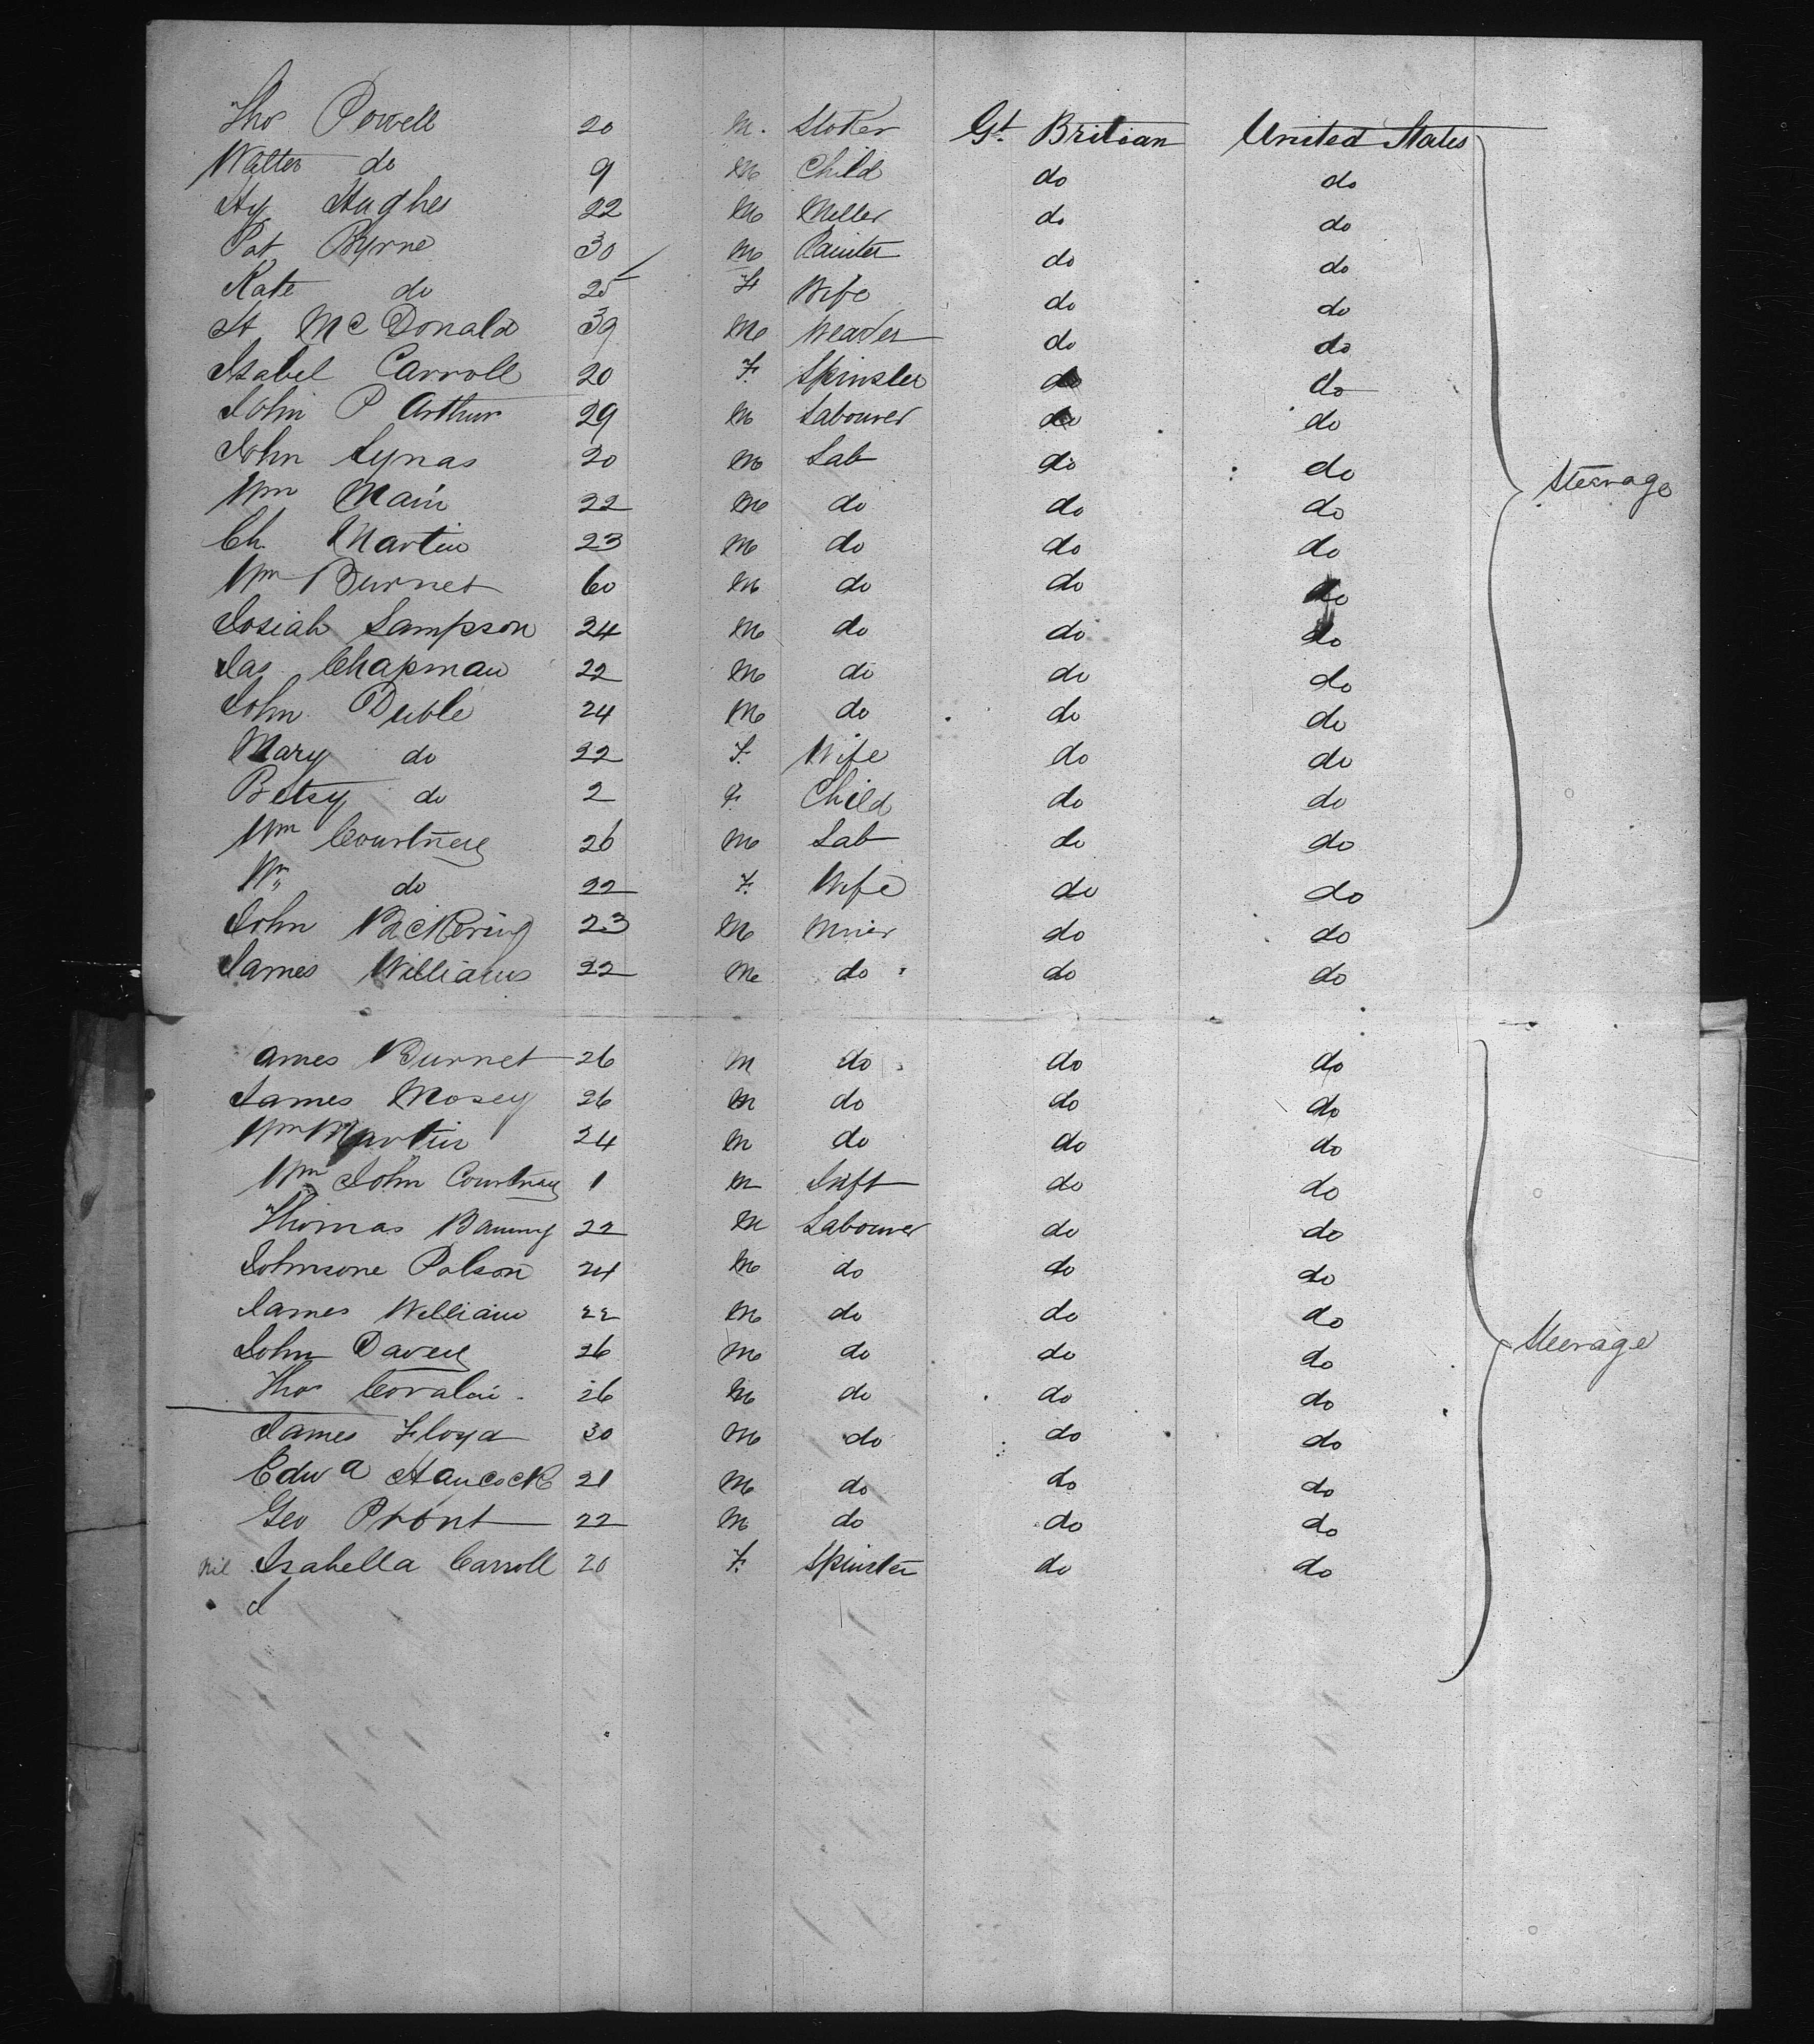 Thos Powell 20 M. Stoker Gt. Britian United States
Walter do 9 M Child do do
Hy Hughes 22 M Miller do do
Pat Byrne 30 M Painter do do
Kate do 25 F Wife do do
H McDonald 39 M Weaver do do
Isabel Carroll 20 F. Spinster do do
John P Arthur 29 M Labourer do do
John Lynas 20 M Lab do do
Wm Main 22 M do do do Steerage
Ch Martin 23 M do do do
Wm Burnet 60 M do do do
Josiah Sampson 24 M do do do
Jas Chapman 22 M do do do
John Duble 24 M do do do
Mary do 22 F. Wife do do
Betsy do 2 F. Child do do
Wm Courtney 26 M Lab do do
do 22 F. Wife do do
John Packering 23 M Miner do do
James Williams 22 M do do do
ames Burnet 26 M do do do
James Mosey 26 M do do do
Wm Martin 24 M do do do
Wm John Courtney 1 M Inft do do
Thomas 22 M Labourer do do
Johnsone Polson 24 M do do do
James William 22 M do do do
John Davey 26 M do do do Steerage
Thos 26 M do do do
James Floyd 30 M do do do
Edwd Hancock 21 M do do do
Geo Pront 22 M do do do
Nil Isabella Carroll 20 F. Spinster do do
J